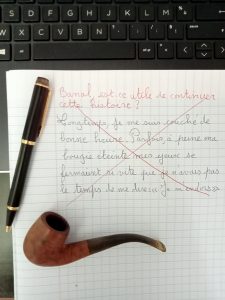 Banal, est-ce utile de continuer
cette histoire ?
Longtemps, je me suis couché de
bonne heure. Parfois, à peine ma
bougie éteinte, mes yeux se
fermaient si vite que je n'avais pas
le temps de me dire : « Je m'endors. »